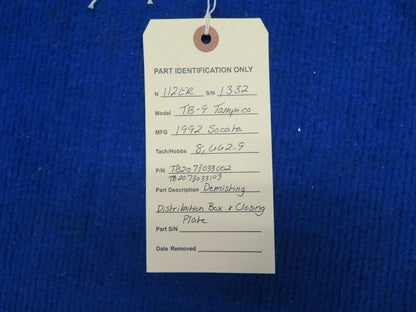 PART IDENTIFICATION ONLY
N 112ER S/N 1332
Model TB-9 Tampico
MFG 1992 Socata
Tach/Hobbs 8,662.9
P/N TB2073033002
TB2073033103
Part Description Demisting
Distribution Box & Closing
Plate
Part S/N
Date Removed